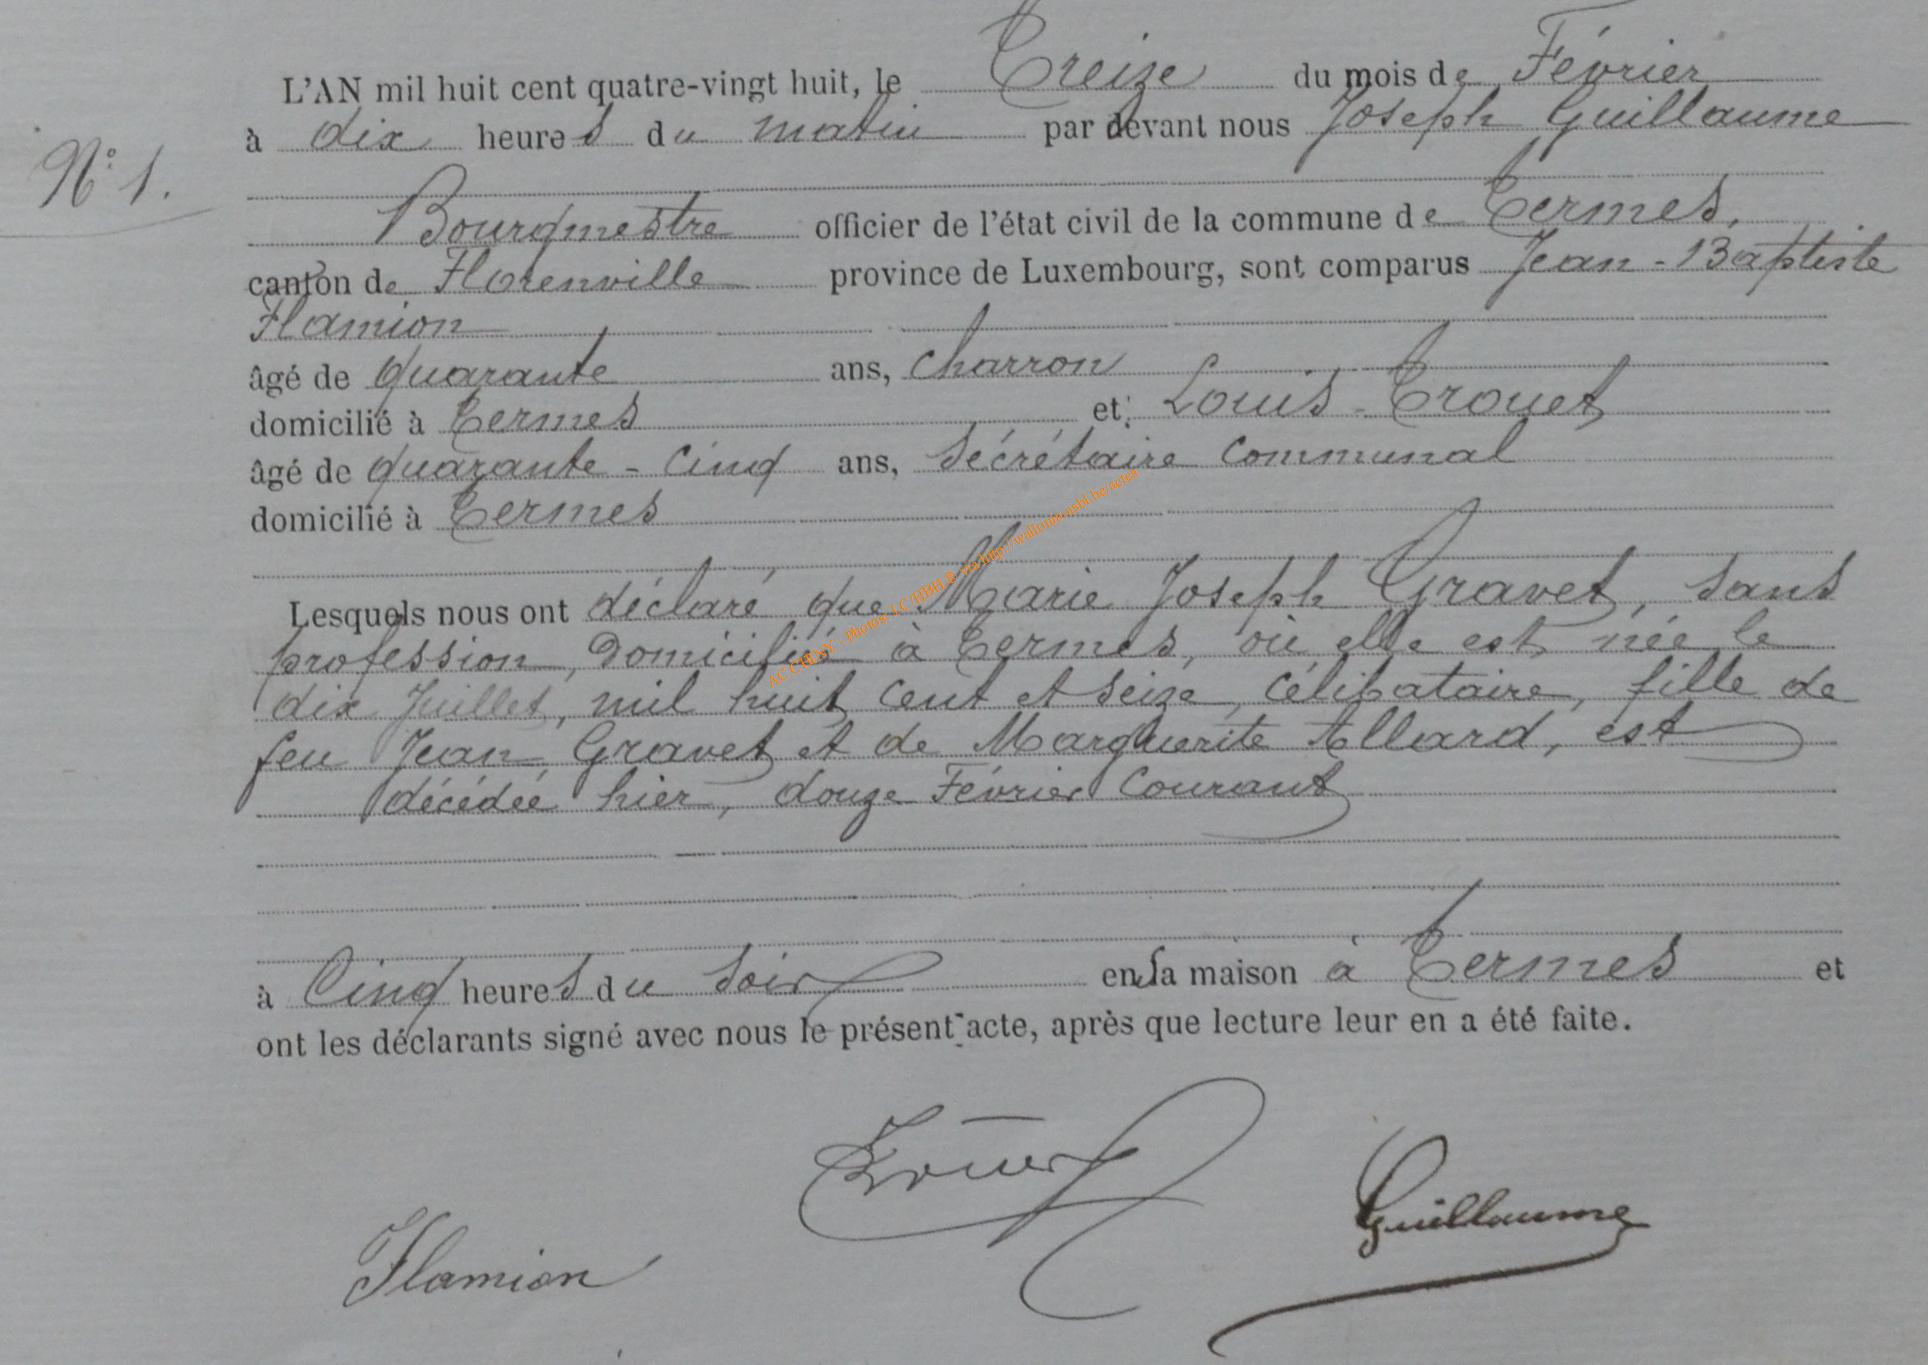 L'AN mil huit cent quatre-vingt huit, le Treize du mois de Février
à dix heures du matin par devant nous Joseph Guillaume
N° 1.
Bourgmestre officier de l'état civil de la commune de Termes,
canton de Florenville province de Luxembourg, sont comparus Jean-Baptiste
Flamion
âgé de quarante ans, charron
domicilié à Termes et Louis Trouet
âgé de quarante-cinq ans, Sécrétaire Communal
domicilié à Termes
Lesquels nous ont déclaré que Marie Joseph Gravet, sans
profession, domiciliée à Termes, où elle est née le
dix Juillet, mil huit cent et seize, célibataire, fille de
feu Jean Gravet et de Marguerite Allard, est
décédée hier, douze Février Courant
à Cinq heures du soir en sa maison à Termes et
ont les déclarants signé avec nous le présent acte, après que lecture leur en a été faite.
Trouet
Guillaume
Flamion